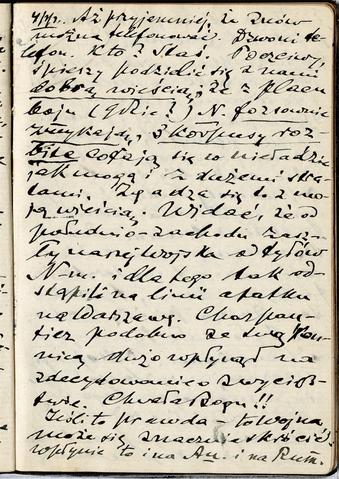 4/X/. Aż przyjemniej, że znów
można telefonować. Dzwoni te-
lefon. Kto? Staś. Poczciwy,
spieszy podzielić się z nami
dobrą wieścią, że z placu
boju (gdzie?) N. forsownie
zmykają, 3 korpusy roz-
bite cofają się w nieładzie
jak mogą i z dużemi stra-
tami. Zgadza się to z mo-
ją wieścią. Widać, że od
południo-zachodu zasz-
ły naszej wojska od tyłów
N-m. i dla tego tak od-
stąpili na linii ataku
na Warszawę. Charpan-
tier podobno ze swą
nicą dużo wpłynął na
zdecydowanie o zwycięst-
wie. Chwała Bogu!!
Jeśli to prawda - to wojna
może się znacznie skrócić.
wpłynie to i na Au. i na Rum.